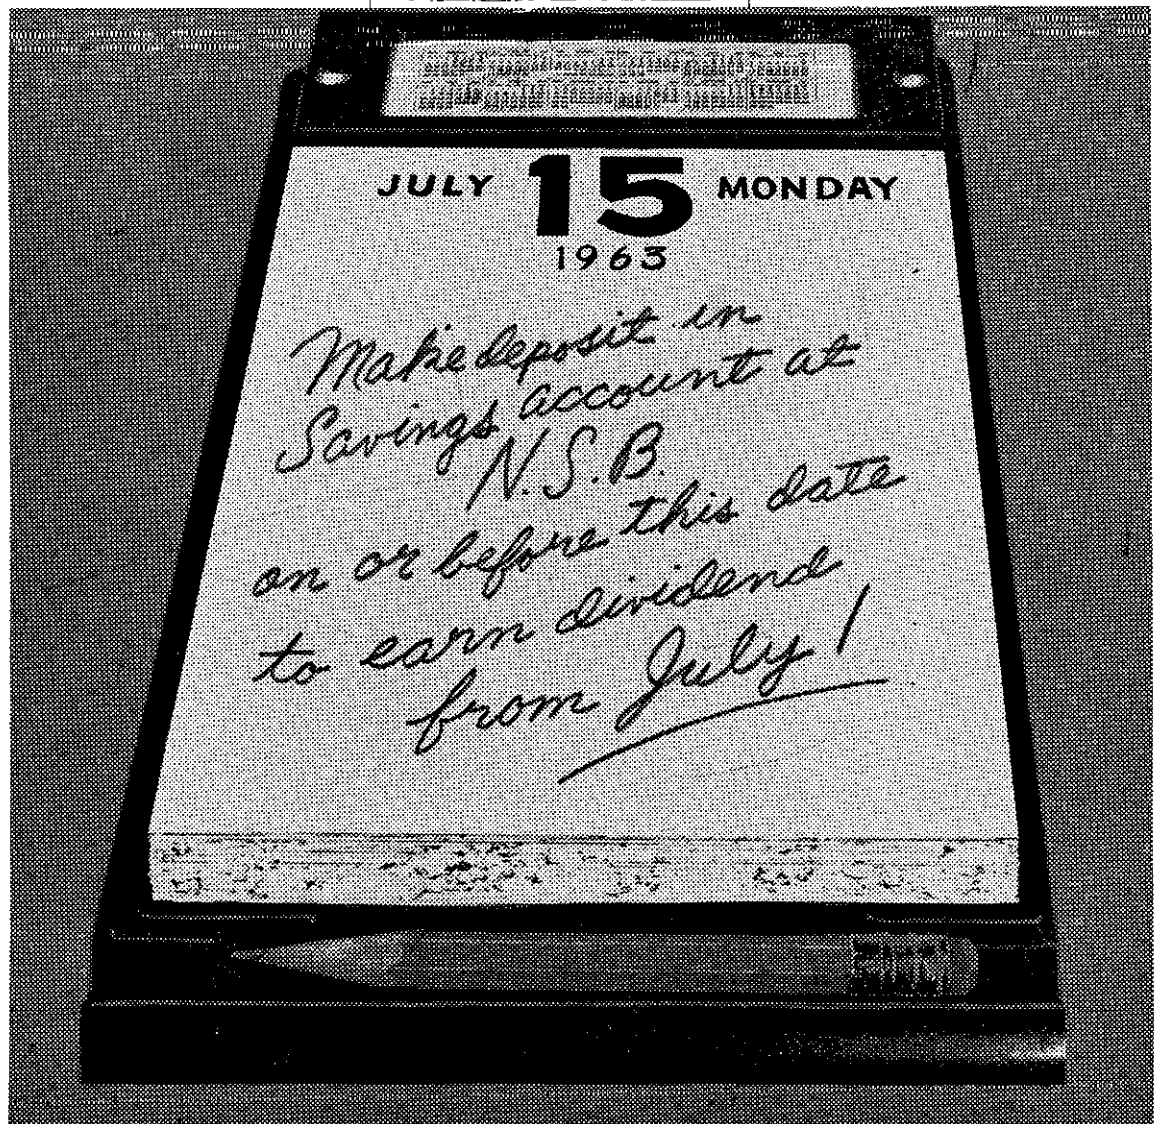 JULY 15 MONDAY
1963
Make deposit in
Savings account at
N.S.B.
on or before this date
to earn dividend
from July 1